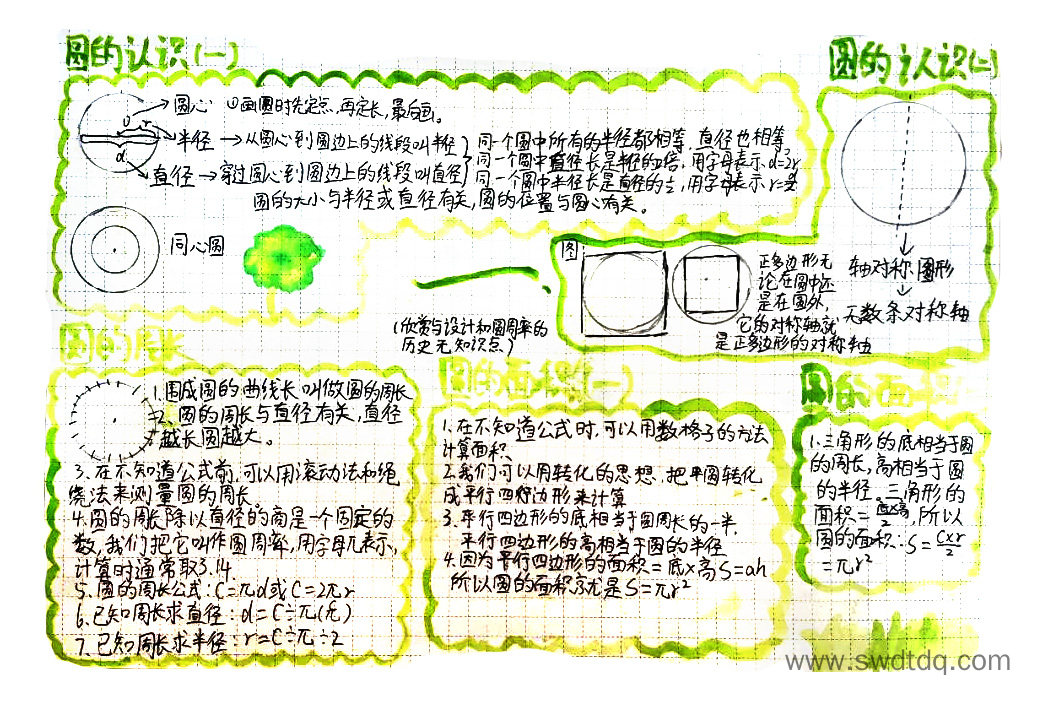 圆的认识(一)
圆心 ①画圆时先定点,再定长,最后画。
半径→从圆心到圆边上的线段叫半径
直径→穿过圆心到圆边上的线段叫直径
同一个圆中所有的半径都相等,直径也相等
同一个圆中直径长是半径的2倍,用字母表示d=2r
同一个圆中半径长是直径的½,用字母表示r=
圆的大小与半径或直径有关,圆的位置与圆心有关。
r
d
同心圆
圆的认识(二)
轴对称图形
无数条对称轴
图
正多边形无
论在圆中还
是在圆外,
它的对称轴就
是正多边形的对称轴
(欣赏与设计和圆周率的
历史无知识点)
圆的周长
1.围成圆的曲线长叫做圆的周长
2.圆的周长与直径有关,直径
越长圆越大。
3.在不知道公式前,可以用滚动法和绳
绕法来测量圆的周长
4.圆的周长除以直径的商是一个固定的
数,我们把它叫作圆周率,用字母π表示,
计算时通常取3.14.
5.圆的周长公式:C=πd或C=2πr
6.已知周长求直径:d=C÷π
7.已知周长求半径:r=C÷π÷2
圆的面积(一)
1.在不知道公式时,可以用数格子的方法
计算面积.
2.我们可以用转化的思想,把平圆转化
成平行四行边形来计算
3.平行四边形的底相当于圆周长的一半.
平行四边形的高相当于圆的半径
4.因为平行四边形的面积=底×高S=ah
所以圆的面积就是S=πr²
圆的面积
1.三角形的底相当于圆
的周长,高相当于圆
的半径.三角形的
面积=底×高/2,所以
圆的面积:S=C×r/2
=πr²
www.swdtdq.com